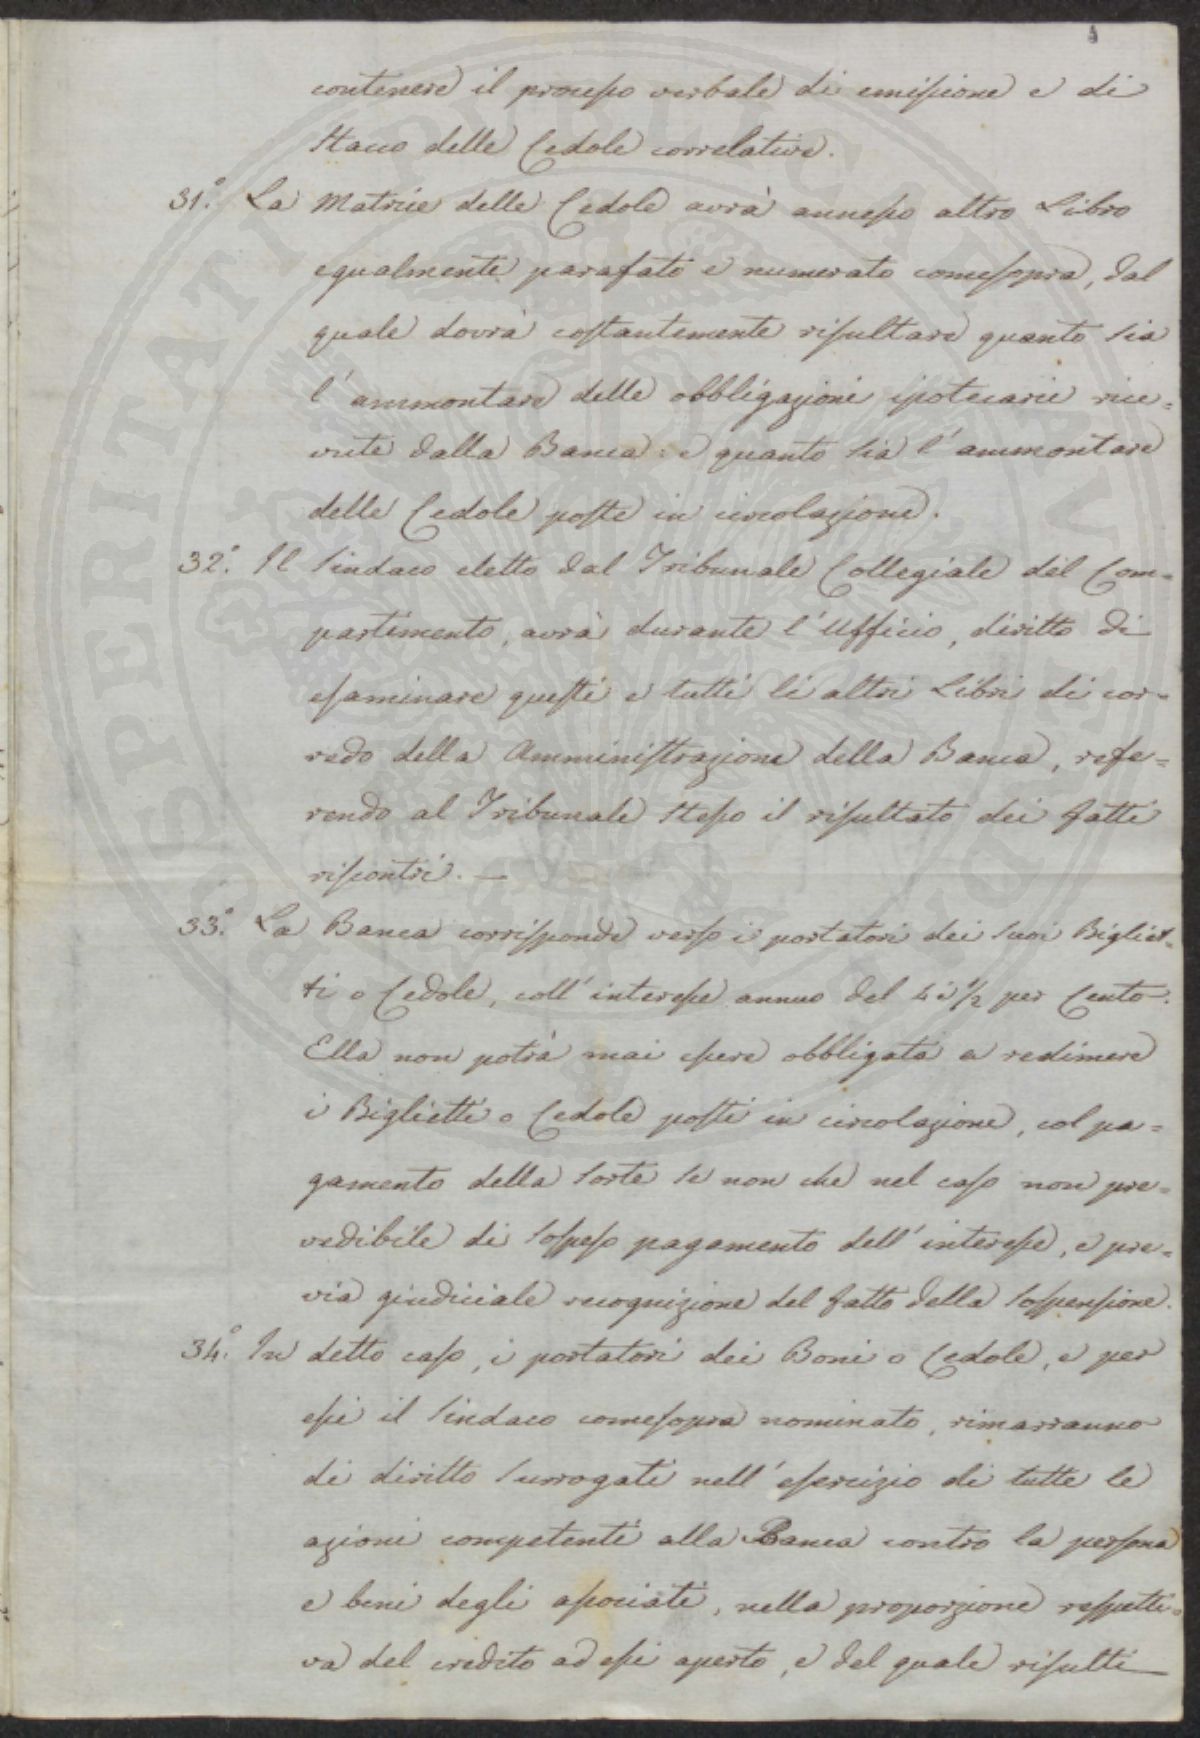 contenere il processo verbale di emissione e di
stacco delle Cedole correlative.
31.° La Matrice delle Cedole avrà annesso altro Libro
egualmente parafato e numerato comesopra, dal
quale dovrà costantemente risultare quanto sia
l'ammontare delle obbligazioni ipotecarie rice=
vute dalla Banca: e quanto sia l'ammontare
delle Cedole poste in circolazione.
32.° Il Sindaco eletto dal Tribunale Collegiale del Com=
partimento, avrà durante l'Ufficio, diritto di
esaminare questi e tutti li altri Libri di cor=
redo della Amministrazione della Banca, refe=
rendo al Tribunale stesso il risultato dei fatti
riscontri. —
33.° La Banca corrisponde verso i portatori dei suoi Bigliet=
ti o Cedole, coll'interesse annuo del 4 i 1/2 per Cento.
Ella non potrà mai essere obbligata a redimere
i Biglietti o Cedole posti in circolazione, col pa=
gamento della sorte se non che nel caso non pre=
vedibile di sospeso pagamento dell'interesse, e pre=
via giudiciale recognizione del fatto della sospensione.
34.° In detto caso, i portatori dei Boni o Cedole, e per
essi il Sindaco comesopra nominato, rimarranno
di diritto surrogati nell'esercizio di tutte le
azioni competenti alla Banca contro la persona
e beni degli associati, nella proporzione respetti=
va del credito ad essi aperto, e del quale risulti
PROSPERITATI PUBLICAE AUGENDAE